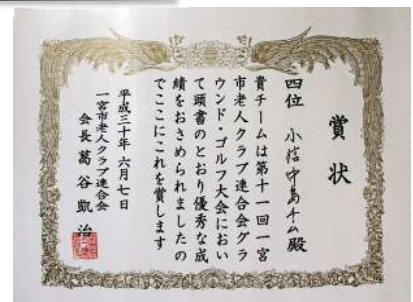 賞状
四位 小信中島チーム殿
貴チームは第十一回一宮
市老人クラブ連合会グラ
ウンド・ゴルフ大会におい
て頭書のとおり優秀な成
績をおさめられましたの
でここにこれを賞します
平成三十年六月七日
一宮市老人クラブ連合会
会長 葛谷凱治